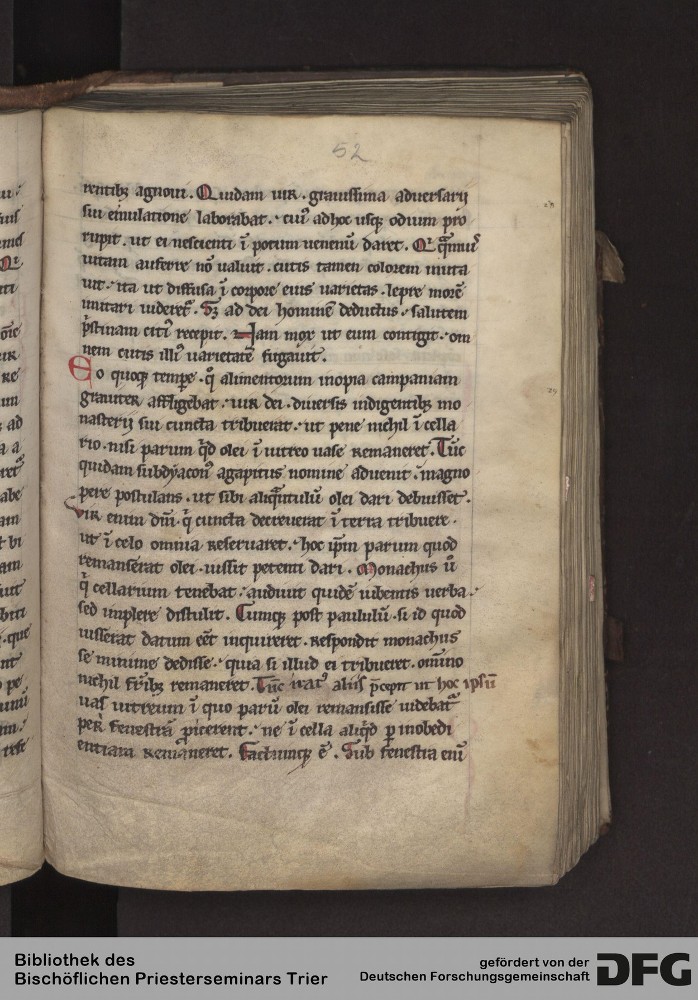 52
rentib; agnoui. Quidam uir. grauissima aduersarij
sui emulatione laborabat. cui' adhoc usq; odium pro
rupit. ut ei nescienti ī potum uenenū daret. Q; q̄muis
uitam auferre nō ualuit. cutis tamen colorem muta
uit. ita ut diffusa ī corpore eius uarietas. lepre morē
imitari videret'. S; ad dei hominē deductus. salutem
p̓stinam citi' recepit. Nam mox ut eum contigit. om
nem cutis illi' uarietatē fugauit.
Eo quoq; tempe. q̓ alimentorum inopia campaniam
grauiter affligebat. uir dei. diuersis indigentib; mo
nasterij sui cuncta tribuerat. ut pene nichil ī cella
rio. nisi parum q̓d olei ī uitreo uase remaneret. Tūc
quidam subdyacon' agapitus nomine aduenit. magno
pere postulans. ut sibi aliq̄ntulū olei dari debuisset.
Vir enim dn̄i. q̓ cuncta decreuerat ī terra tribuere.
ut ī celo omnia reseruaret. hoc ip̄m parum quod
remanserat olei. iussit petenti dari. Monachus ū
q̓ cellarium tenebat. audiuit quidē iubentis uerba.
sed implere distulit. Cumq; post paululū. si id quod
iusserat datum eēt inquireret. respondit monachus
se minime dedisse. quia si illud ei tribueret. omīno
nichil fr̄ib; remaneret. Tūc irat' aliis p̄cepit ut hoc ipsū
uas uitreum ī quo parū olei remansisse uidebat'
per fenestrā p̓icerent. ne ī cella aliq̓d p inobedi
entiam remaneret. Factumq; ē. Sub fenestra enī
Bibliothek des
Bischöflichen Priesterseminars Trier
gefördert von der
Deutschen Forschungsgemeinschaft
DFG